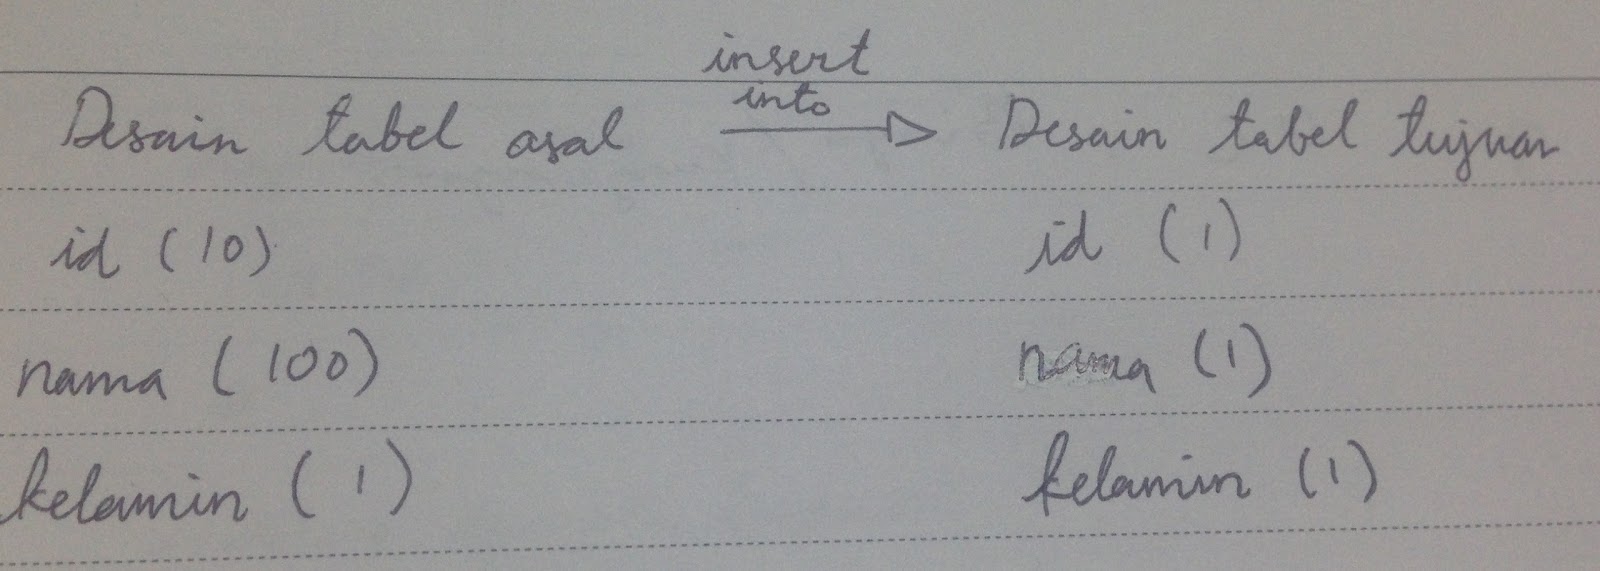 insert
into
Desain tabel asal Desain tabel tujuan
id (10) id (1)
nama (100) nama (1)
kelamin (1) kelamin (1)